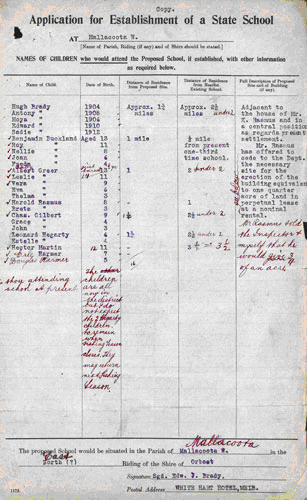 Copy.
Application for Establishment of a State School
AT Mallacoota W.
[Name of Parish, Riding (if any) and of Shire should be stated.]
NAMES OF CHILDREN who would attend the Proposed School, if established, with other information
as required below.
Names of Children. Date of Birth. Distance of Residence from Proposed Site. Distance of Residence from Nearest Existing School. Full Description of Proposed Site (and of Building, if any).
Hugh Brady 1904 Approx. 1¾ Approx. 2½ Adjacent to
Antony " 1908 miles miles under 2 the house of Mr.
Moya " 1904 E. Rasmus and in
Edward " 1910 a central position
Sadie " 1912 as regards present
Benjamin Buckland Aged 13 1 mile ½ mile settlement.
Roy " 11 from present Mr. Rasmus
Hallie " 8 one-third has offered to
Joan " 4 time school. cede to the Dept.
the necessary
Albert Greer 13 1 2 under 2 site for the
Leslie " 11 erection of the
Vera " 9 building equivalent
Eva " 4 to one quarter
Thelma " 3 acre of land in
Harold Rasmus 8 perpetual lease
Breta " 5 at a nominal
Chas. Gilbert 9 2½ under 2 rental.
Grace " 4 Mr Rasmus told
John " 3 the Inspector &
Leonard Hegarty 4 1½ 2½ under 2 myself that he
Estelle " 4 would give ¾
Hector Martin 12 11 of an acre
Eric Harmer 7
Douglas Harmer 5
They attending
school at present
The
children
are all
now in
the district
but I do
not expect
the
children
to remain
when
closes. They
may return
next fishing
season
The proposed School would be situated in the Parish of Mallacoota W. in the
Mallacoota
East
North (?) Riding of the Shire of Orbost
Signature Sgd. Edw. J. Brady.
Postal Address WHITE HART HOTEL, MELB.